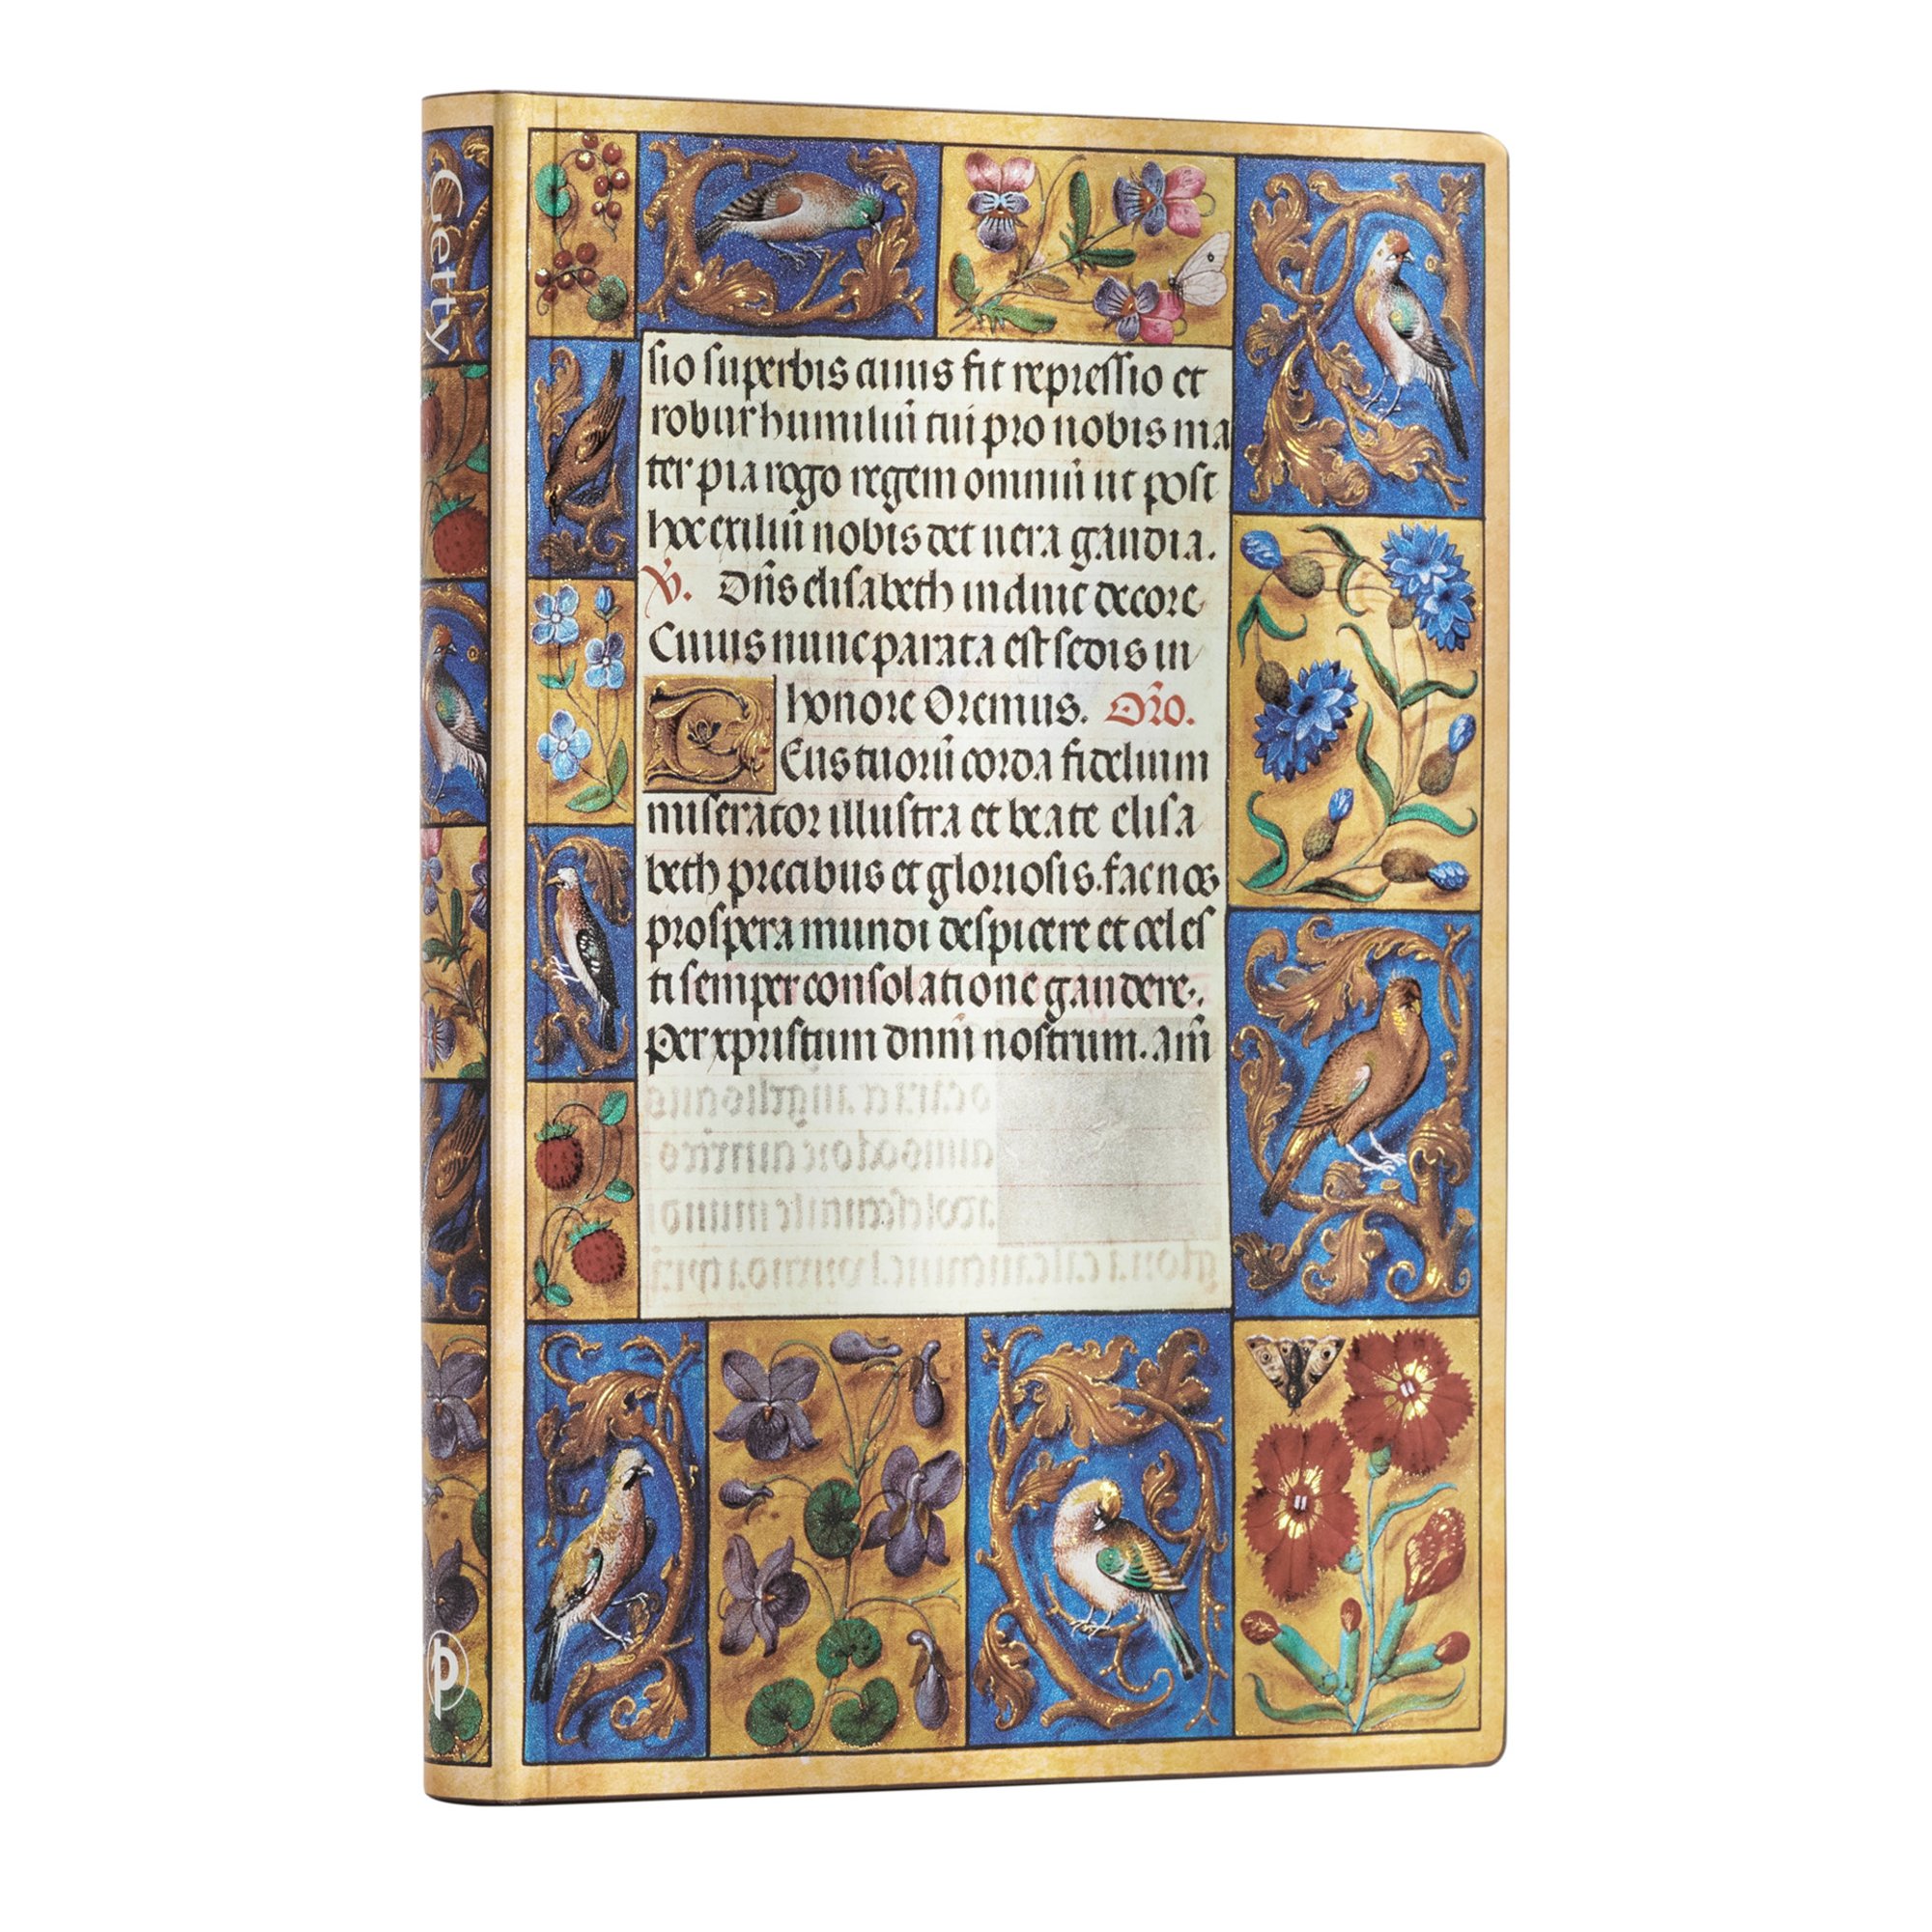 Getty
sio superbis cuius fit repressio et
robur humiliũ tui pro nobis ma
ter pia rogo regem omniũ ut post
hoc exiliũ nobis det uera gaudia.
℣. Dñs elisabeth induit decore
Cuius nunc parata est sedis in
honore Oremus. Oro.
Deus tuorũ corda fidelium
miserator illustra et beate elisa
beth precibus et gloriosis. fac nos
prospera mundi despicere et celes
ti semper consolatione gaudere.
Per xpristum dnm̃ nostrum. am̃
p